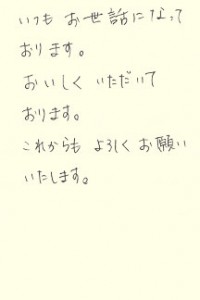 いつも お世話になって
おります。
おいしく いただいて
おります。
これからも よろしく お願い
いたします。